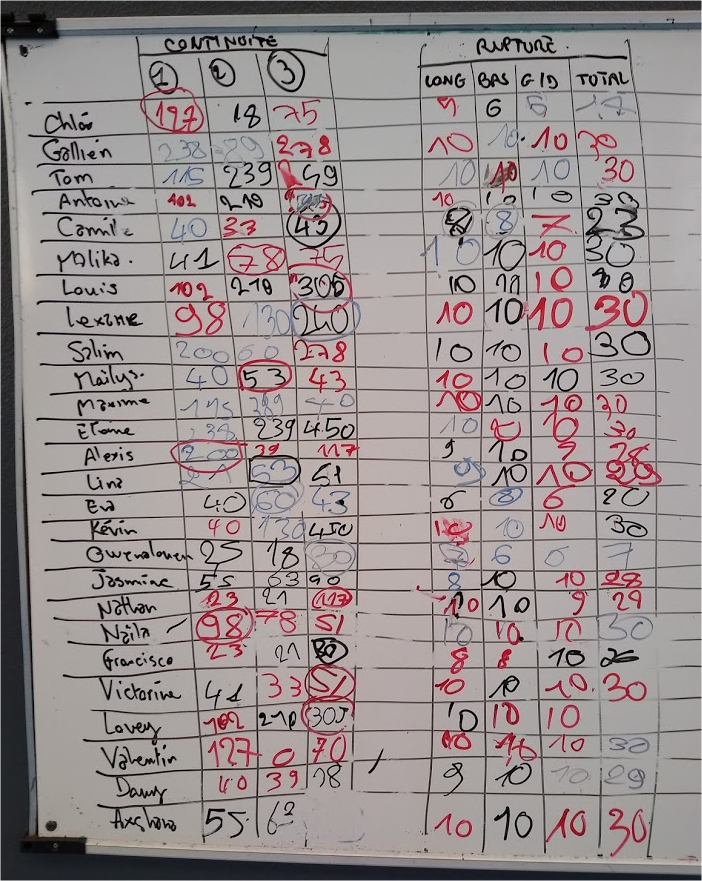 CONTINUITE RUPTURE
1 2 3 LONG BAS G/D TOTAL
Chloé 197 18 75 6
Gallien 238 278 10 10 10 30
Tom 115 239 10 10 10 30
Antoine 102 210 10 10 10 30
Camille 40 33 43 8 7 23
Malika. 41 78 75 10 10 10 30
Louis 102 210 305 10 10 10
Lexane 98 130 240 10 10 10 30
Salim 200 60 278 10 10 10 30
Maïlys. 40 53 43 10 10 10 30
Maxime 115 40 10 10 10 30
Etane 238 239 450 10 10 30
Alexis 200 39 117 9 10 9 28
Lina 63 51 9 10 10 29
Eva 40 60 43 6 8 6 20
Kévin 40 130 450 10 10 10 30
Gwenalouen 25 18 30 6 7
Jasmine 55 63 90 8 10 10 28
Nathan 23 21 117 10 10 9 29
Naïla 98 78 51 10 10 10 30
Francisco 23 21 30 8 8 10 26
Victorine 41 33 51 10 10 10 30
Lovey 102 210 305 10 10 10
Valentin 127 0 70 10 10 10 30
Dany 40 39 18 9 10 10 29
55 63 10 10 10 30